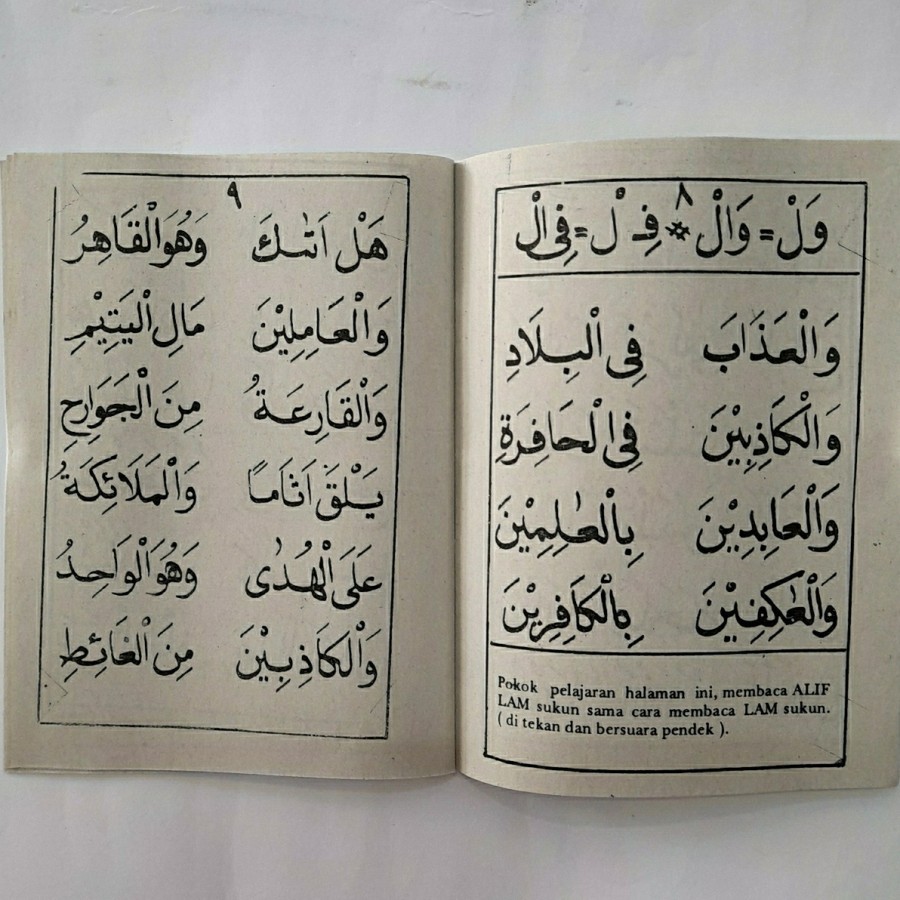 ٨
وَلْ = وَالْ * فِـ لْ = فِى الْ
وَالْعَذَابَ فِى الْبِلَادِ
وَالْكَاذِبِيْنَ فِى الْحَافِرَةِ
وَالْعَابِدِيْنَ بِالْعٰلِمِيْنَ
وَالْعٰكِفِيْنَ بِالْكَافِرِيْنَ
Pokok pelajaran halaman ini, membaca ALIF
LAM sukun sama cara membaca LAM sukun.
( di tekan dan bersuara pendek ).
٩
هَلْ اَتٰىكَ وَهُوَالْقَاهِرُ
وَالْعَامِلِيْنَ مَالِ الْيَتِيْمِ
وَالْقَارِعَةُ مِنَ الْجَوَارِحِ
يَلْقَ اَثَامًا وَالْمَلَائِكَةُ
عَلَى الْهُدٰى وَهُوَالْوَاحِدُ
وَالْكَاذِبِيْنَ مِنَ الْغَائِطِ